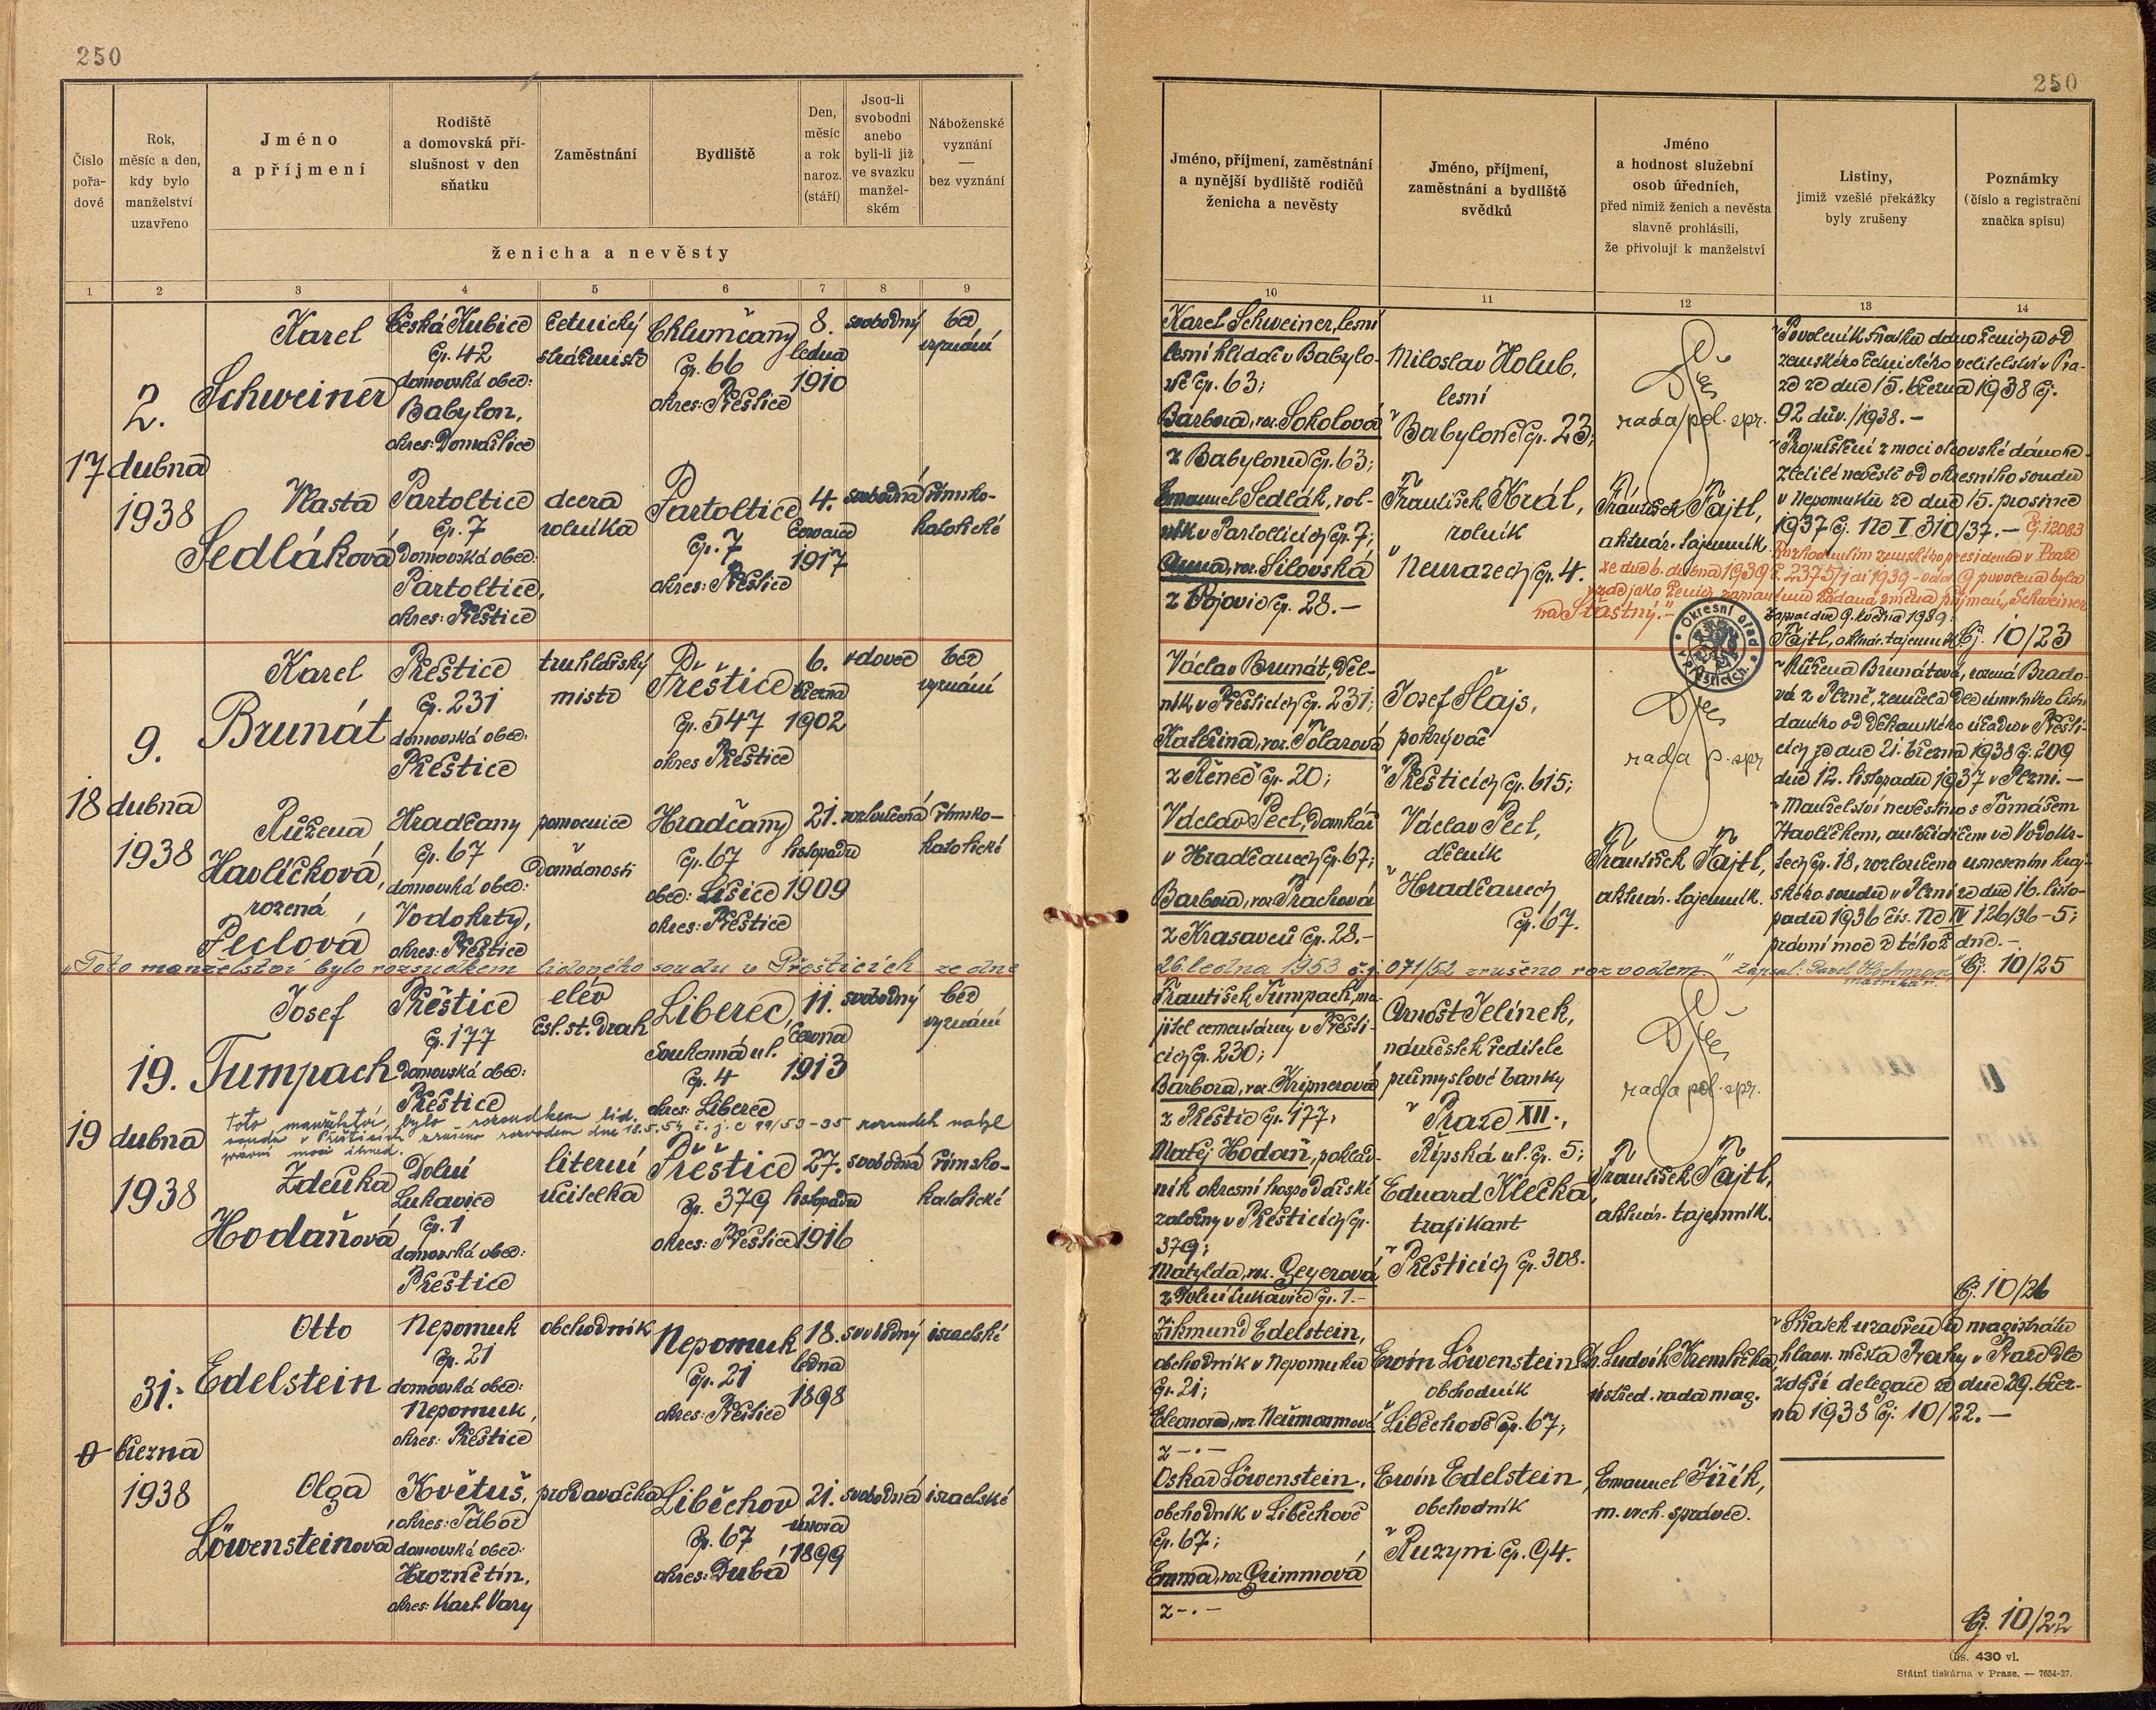 250
Číslo pořa- dové
Rok, měsíc a den, kdy bylo manželství uzavřeno
Jméno a příjmení
Rodiště a domovská pří- slušnost v den sňatku
Zaměstnání
Bydliště
Den, měsíc a rok naroz. (stáří)
Jsou-li svobodni anebo byli-li již ve svazku manžel- ském
Náboženské vyznání — bez vyznání
ženicha a nevěsty
1 2 3 4 5 6 7 8 9
17
2.
dubna
1938
Karel
Schweiner
Česká Kubice
čp. 42
domovská obec:
Babylon,
okres: Domažlice
četnický
strážmistr
Chlumčany
čp. 66
okres: Přeštice
8.
ledna
1910
svobodný
bez
vyznání
Vlasta
Sedláková
Partoltice
čp. 7
Domovská obec:
Partoltice,
okres: Přeštice
dcera
rolníka
Partoltice
čp. 7
okres: Přeštice
4.
července
1917
svobodná
římsko-
katolické
18
9.
dubna
1938
Karel
Brunát
Přeštice
čp. 231
domovská obec:
Přeštice
truhlářský
mistr
Přeštice
čp. 547
okres Přeštice
6.
března
1902
vdovec
bez
vyznání
Růžena
Havlíčková,
rozená
Peclová
Hradčany
čp. 67
domovská obec:
Vodokrty,
okres: Přeštice
pomocnice
v domácnosti
Hradčany
čp. 67
obec: Lišice
okres: Přeštice
21.
listopadu
1909
rozloučená
římsko-
katolické
"Toto manželství bylo rozsudkem lidového soudu v Přešticích ze dne
19
19.
dubna
1938
Josef
Tumpach
Přeštice
čp. 177
Domovská obec:
Přeštice
elév
čsl. st. drah
Liberec,
Soukenná ul.
čp. 4
okres: Liberec
11.
června
1913
svobodný
bez
vyznání
Toto manželství bylo rozsudkem lid.
soudu v Přešticích zrušeno rozvodem dne 18.5.54 č. j. C 99/53-35 rozsudek nabyl
právní moci ihned.
Zdeňka
Hodaňová
Dolní
Lukavice
čp. 1
domovská obec:
Přeštice
literní
učitelka
Přeštice
čp. 379
okres: Přeštice
27.
listopadu
1916
svobodná
římsko-
katolické
0
31.
března
1938
Otto
Edelstein
Nepomuk
čp. 21
domovská obec:
Nepomuk,
okres: Přeštice
obchodník
Nepomuk
čp. 21
okres: Přeštice
18.
ledna
1898
svobodný
israelské
Olga
Löwensteinová
Květuš,
okres: Tábor
domovská obec:
Hroznětín,
okres: Karl. Vary
prodavačka
Liběchov
čp. 67
okres: Dubá
21.
února
1899
svobodná
israelské
250
Jméno, příjmení, zaměstnání a nynější bydliště rodičů ženicha a nevěsty
Jméno, příjmení, zaměstnání a bydliště svědků
Jméno a hodnost služební osob úředních, před nimiž ženich a nevěsta slavně prohlásili, že přivolují k manželství
Listiny, jimiž vzešlé překážky byly zrušeny
Poznámky (číslo a registrační značka spisu)
10 11 12 13 14
Karel Schweiner, lesní
lesní hlídač v Babylo-
ně čp. 63;
Barbora, roz. Sokolová
z Babylonu čp. 63;
Emanuel Sedlák, rol-
ník v Partolticích čp. 7;
Anna, roz. Silovská
z Vojovic čp. 28.-
Miloslav Holub,
lesní
v Babyloně čp. 23;
František Král,
rolník
v Neurazech čp. 4.
rada pol. spr.
František Fajtl,
aktuár. tajemník.
Povolení k sňatku dáno ženichu od
zemského četnického velitelství v Pra-
ze ze dne 15. března 1938 čj.
92 dův./1938.-
Prominutí z moci otcovské dáno ne-
zletilé nevěstě od okresního soudu
v Nepomuku ze dne 15. prosince
1937 čj. Nc I 310/37.- čj. 12083
Rozhodnutím zemského presidenta v Praze
ze dne 6. dubna 1939 č. 2375/1 ai 1939 - odd. 9 povolena byla
vzadu jako ženich zapsanému žádaná změna příjmení "Schweiner"
na "Šťastný."-
Zapsal dne 9. května 1939:
Fajtl, aktuár. tajemník
čj. 10/23
Okresní úřad v Přešticích
Václav Brunát, děl-
ník v Přešticích čp. 231;
Kateřina, roz. Tolarová
z Řeneč čp. 20;
Václav Pecl, domkář
v Hradčanech čp. 67;
Barbora, roz. Prachová
z Krasavců čp. 28.-
Josef Šlajs,
pokrývač
v Přešticích čp. 615;
Václav Pecl,
dělník
v Hradčanech
čp. 67.
rada p. spr
František Fajtl,
aktuár. tajemník.
Růžena Brunátová, rozená Brado-
vá z Plzně, zemřela dle úmrtního listu
daného od děkanského úřadu v Přešti-
cích ze dne 21. března 1938 čj. 209
dne 12. listopadu 1937 v Plzni.-
Manželství nevěstino s Tomášem
Havlíčkem, autořidičem ve Vodokr-
tech čp. 18, rozloučeno usnesením kraj-
ského soudu v Plzni ze dne 16. listo-
padu 1936 čís. Nc IV 126/36-5;
právní moc z téhož dne.-
čj. 10/25
26. ledna 1953 č.j. 071/52 zrušeno rozvodem." Zapsal: Pavel Hochman,
matrikář.
František Tumpach, ma-
jitel cementárny v Přešti-
cích čp. 230;
Barbora, roz. Kripnerová
z Přeštic čp. 177;
Matěj Hodaň, poklad-
ník okresní hospodářské
záložny v Přešticích čp.
379;
Matylda, roz. Geyerová
z Dolní Lukavice čp. 1.-
Arnošt Jelínek,
náměstek ředitele
průmyslové banky
v Praze XII.,
Řípská ul. čp. 5;
Eduard Klečka,
trafikant
v Přešticích čp. 308.
rada pol. spr.
František Fajtl,
aktuár. tajemník.
čj. 10/26
Zikmund Edelstein,
obchodník v Nepomuku
čp. 21;
Eleonora, roz. Neumannová
z -.-
Oskar Löwenstein,
obchodník v Liběchově
čp. 67;
Emma, roz. Grimmová
z -.-
Ervín Löwenstein,
obchodník
v Liběchově čp. 67;
Ervín Edelstein,
obchodník
v Ruzyni čp. 94.
Dr. Ludvík Kremlička,
ústřed. rada mag.
Emanuel Jiřík,
m. vrch. správce.
Sňatek uzavřen u magistrátu
hlavn. města Prahy v Praze dle
zdejší delegace ze dne 29. břez-
na 1938 čj. 10/22.-
čj. 10/22
Čís. 430 vl.
Státní tiskárna v Praze. — 7654-37.